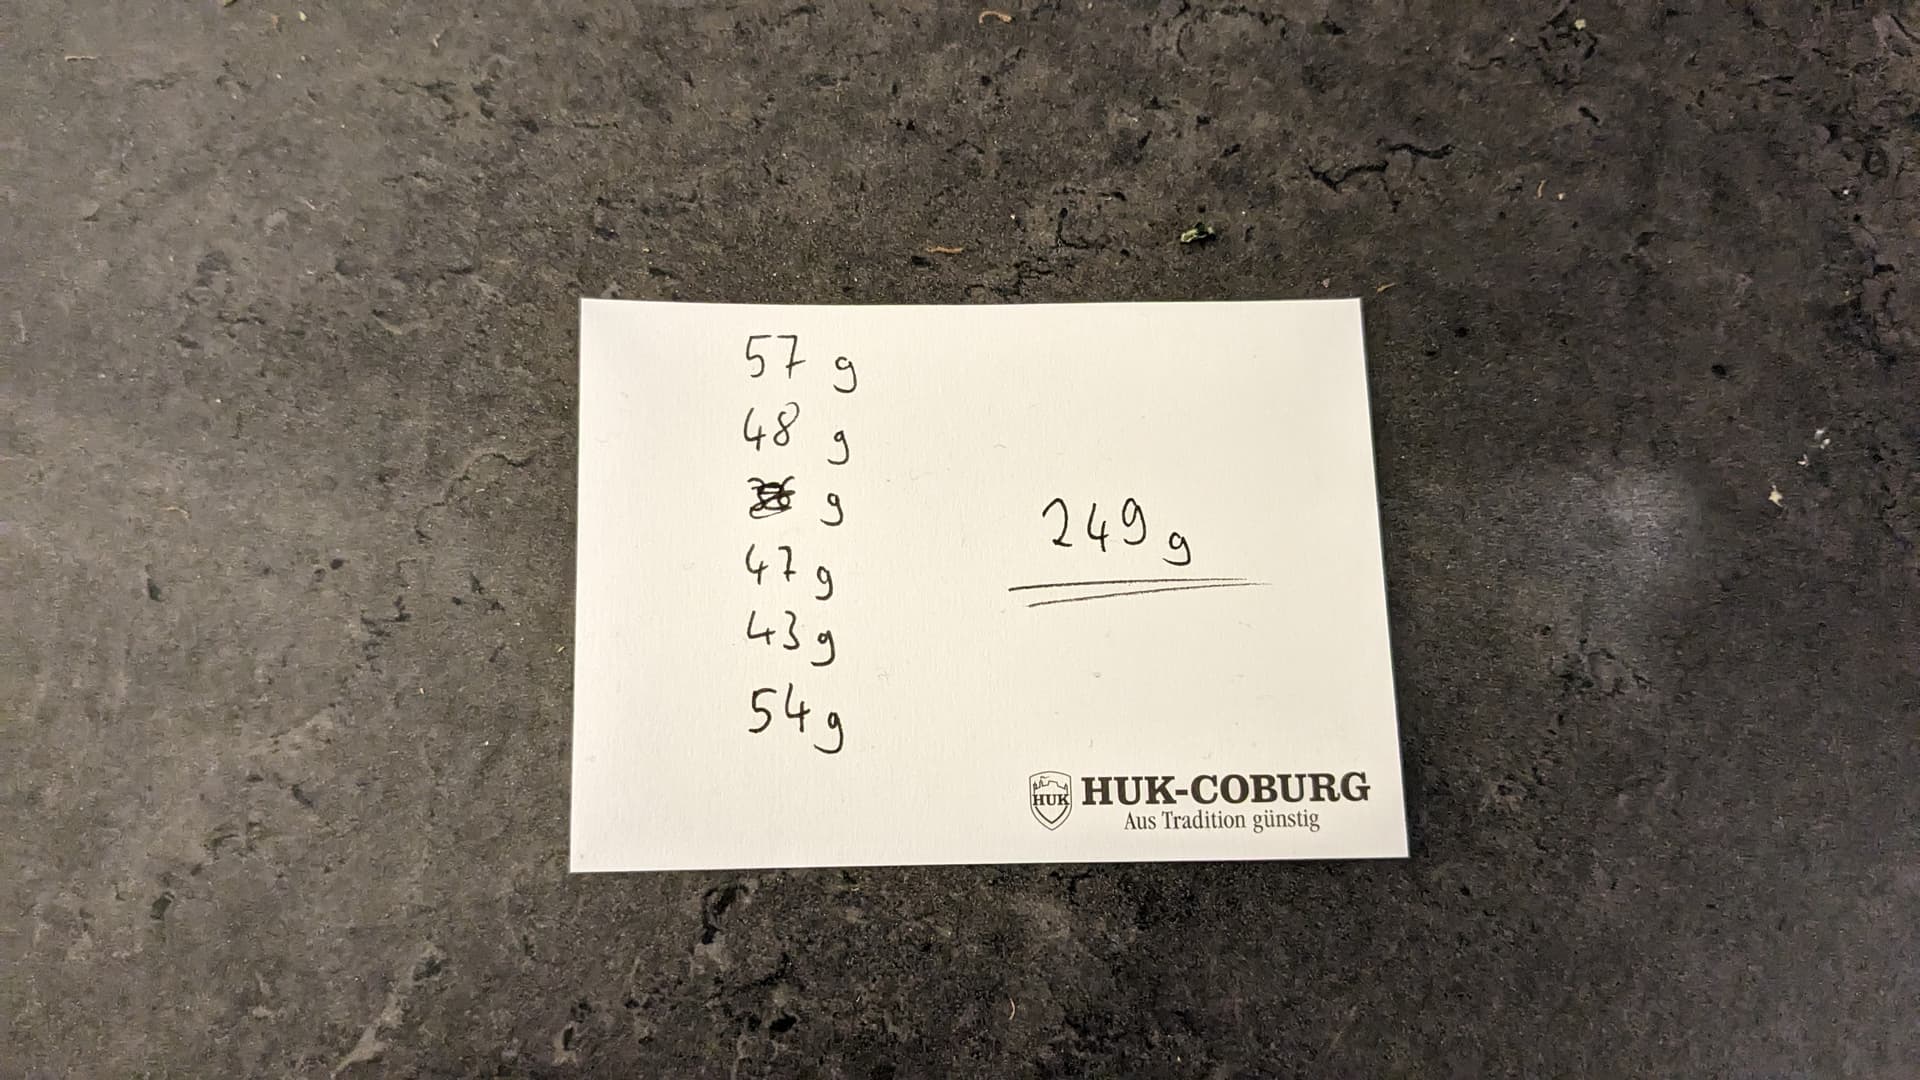 57 g
48 g
g
47 g
43 g
54 g
249 g
HUK
HUK-COBURG
Aus Tradition günstig